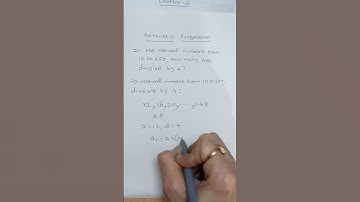 Chapter-2
Arithmetic Progression
In the natural numbers from
10 to 250, how many are
divisible by 4?
Natural numbers from 10 to 250,
divisible by 4:
12, 16, 20, ....., 248
A P
a = 12, d = 4
an = a + (n